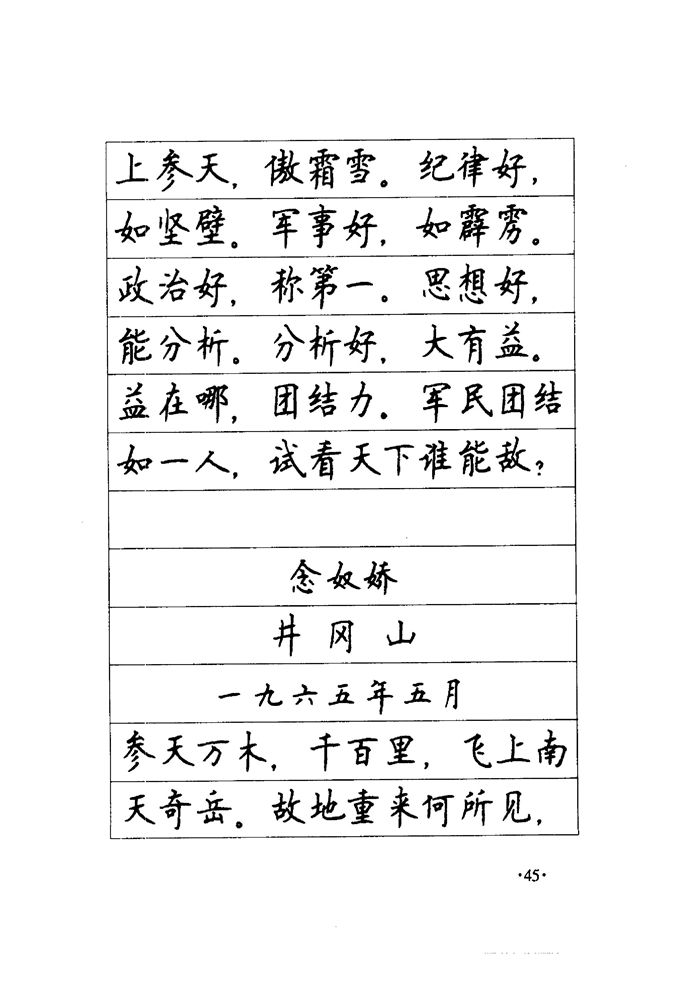 上参天，傲霜雪。纪律好，
如坚壁。军事好，如霹雳。
政治好，称第一。思想好，
能分析。分析好，大有益。
益在哪，团结力。军民团结
如一人，试看天下谁能敌？
念奴娇
井冈山
一九六五年五月
参天万木，千百里，飞上南
天奇岳。故地重来何所见，
·45·